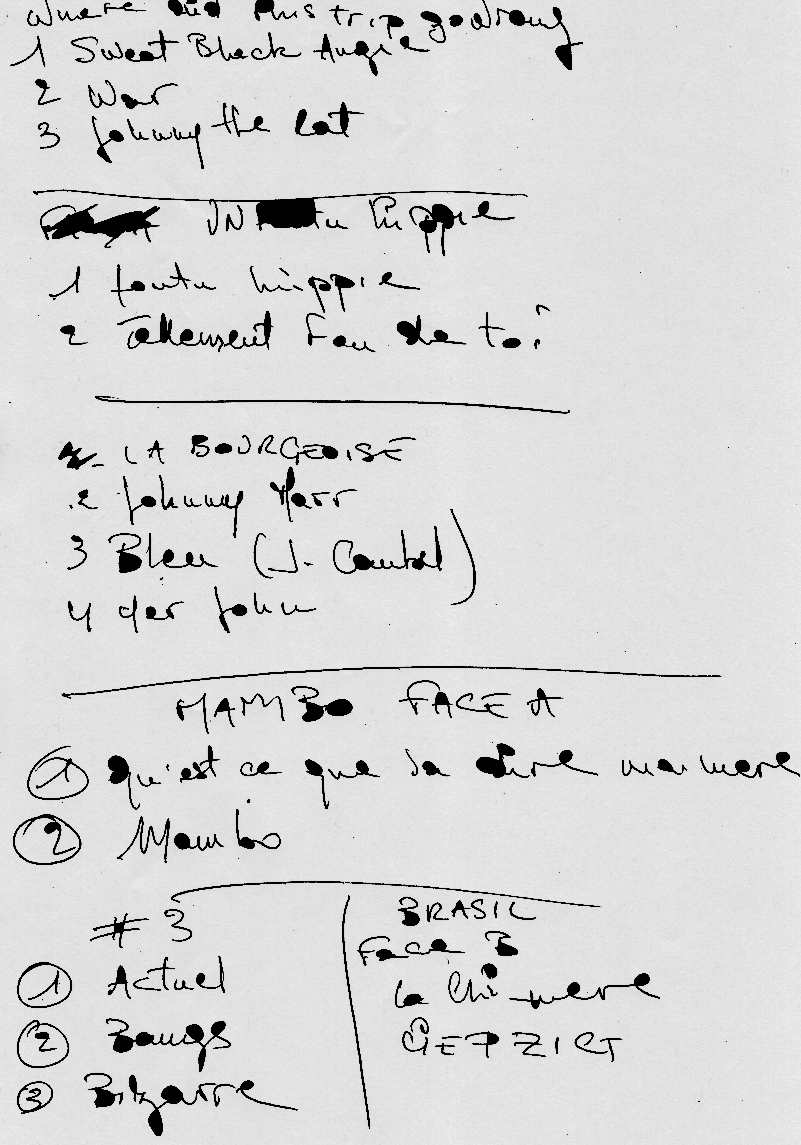 Where did this trip go wrong
1 Sweet Black Angie
2 War
3 Johnny the Cat
UN hippie
1 foutu hippie
2 Tellement Fou de toi
- LA BOURGEOISE
2 Johnny Marr
3 Bleu (J-
4 der John
MAMBO FACE A
1 Qu'est ce que va dire ma mere
2 Mambo
# 3
1 Actuel
2 Bangs
3 Bizarre
BRASIL
Face B
la Chimere